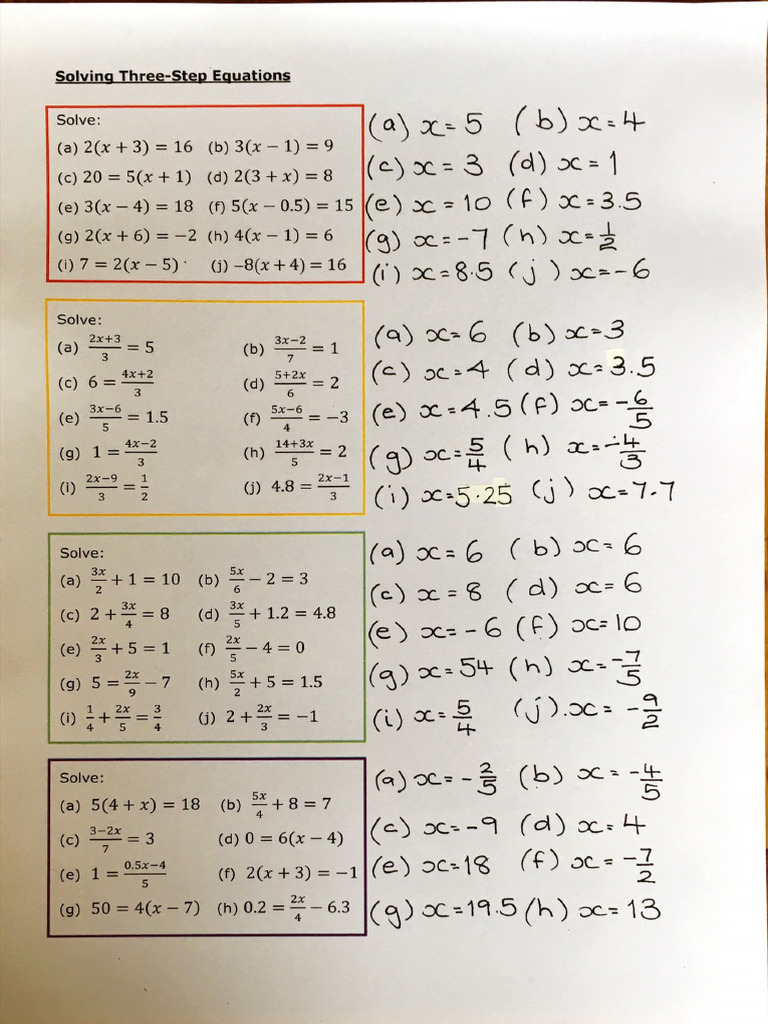 Solving Three-Step Equations
Solve:
(a) 2(x + 3) = 16 (b) 3(x − 1) = 9 (a) x = 5 (b) x = 4
(c) 20 = 5(x + 1) (d) 2(3 + x) = 8 (c) x = 3 (d) x = 1
(e) 3(x − 4) = 18 (f) 5(x − 0.5) = 15 (e) x = 10 (f) x = 3.5
(g) 2(x + 6) = −2 (h) 4(x − 1) = 6 (g) x = −7 (h) x = 1/2
(i) 7 = 2(x − 5) (j) −8(x + 4) = 16 (i) x = 8.5 (j) x = −6
Solve:
(a) (2x+3)/3 = 5 (b) (3x−2)/7 = 1 (a) x = 6 (b) x = 3
(c) 6 = (4x+2)/3 (d) (5+2x)/6 = 2 (c) x = 4 (d) x = 3.5
(e) (3x−6)/5 = 1.5 (f) (5x−6)/4 = −3 (e) x = 4.5 (f) x = −6/5
(g) 1 = (4x−2)/3 (h) (14+3x)/5 = 2 (g) x = 5/4 (h) x = −4/3
(i) (2x−9)/3 = 1/2 (j) 4.8 = (2x−1)/3 (i) x = 5.25 (j) x = 7.7
Solve:
(a) 3x/2 + 1 = 10 (b) 5x/6 − 2 = 3 (a) x = 6 (b) x = 6
(c) 2 + 3x/4 = 8 (d) 3x/5 + 1.2 = 4.8 (c) x = 8 (d) x = 6
(e) 2x/3 + 5 = 1 (f) 2x/5 − 4 = 0 (e) x = −6 (f) x = 10
(g) 5 = 2x/9 − 7 (h) 5x/2 + 5 = 1.5 (g) x = 54 (h) x = −7/5
(i) 1/4 + 2x/5 = 3/4 (j) 2 + 2x/3 = −1 (i) x = 5/4 (j). x = −9/2
Solve:
(a) 5(4 + x) = 18 (b) 5x/4 + 8 = 7 (a) x = −2/5 (b) x = −4/5
(c) (3−2x)/7 = 3 (d) 0 = 6(x − 4) (c) x = −9 (d) x = 4
(e) 1 = (0.5x−4)/5 (f) 2(x + 3) = −1 (e) x = 18 (f) x = −7/2
(g) 50 = 4(x − 7) (h) 0.2 = 2x/4 − 6.3 (g) x = 19.5 (h) x = 13